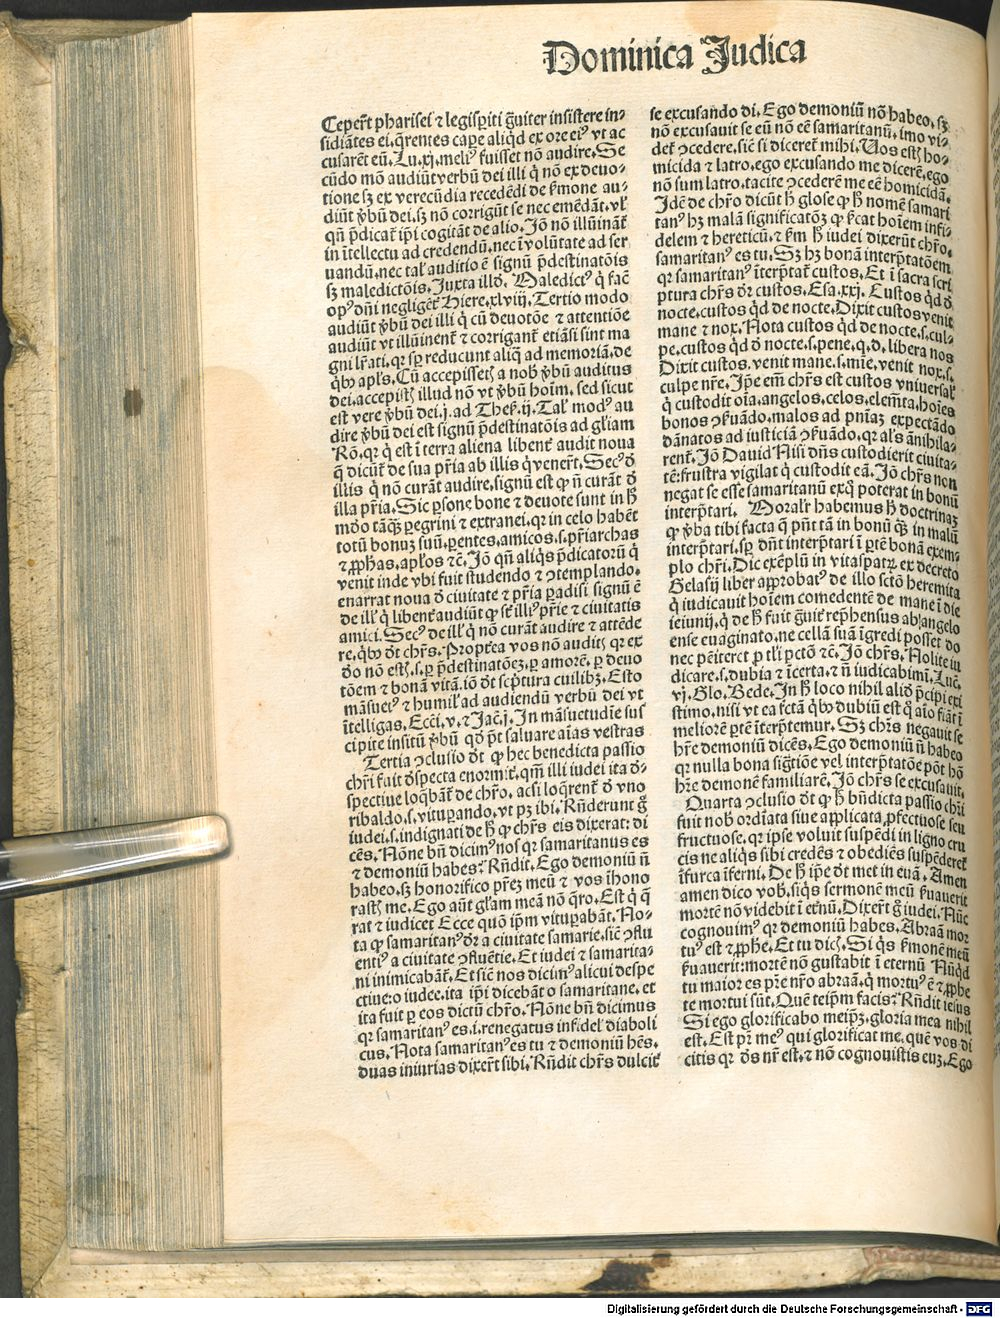 Dominica Judica
Ceper̄t pharisei ⁊ legisꝑiti g̃uiter insistere in-
sidiātes ei.q̄rentes caꝑe aliqd̓ ex ore eiꝰ vt ac
cusarēt eū.Lu.xj.meliꝰ fuisset nō audire.Se
cūdo mō audiūt verbū dei illi q̇ nō ex deuo-
tione sꝫ ex verecūdia recedēdi de ẜmone au-
diūt v̓bū dei.sꝫ nō corrigūt se nec emēdāt.vl̓
qn̄ p̄dicat̄ ip̄i cogitāt de alio.Iō nō illūinān̄t
in ītellectu ad credendū.nec ī volūtate ad ser
uandū.nec tal̓ auditio ē signū p̄destinatōis
sꝫ maledictōis.Juxta illd̓. Maledictꝰ q̇ fac̄
opꝰ dn̄i negligēt̄ Hiere.xlviij.Tertio modo
audiūt v̓bū dei illi q̇ cū deuotōe ⁊ attentiōe
audiūt vt illūinent̄ ⁊ corrigant̄ etiāsi sint ma
gni lr̄ati.qꝛ sꝑ reducunt aliq̄ ad memoriā.de
q̇bꝰ apl̓s.Cū accepissetꝭ a nob̓ v̓bū auditus
dei.accepistꝭ illud nō vt v̓bū hoīm.sed sicut
est vere v̓bū dei.j.ad Theẜ.ij.Tal̓ modꝰ au
dire v̓bū dei est signū p̄destinatōis ad gl̓iam
Rō.qꝛ q̇ est ī terra aliena libent̄ audit noua
q̄ dicūt̄ de sua pr̄ia ab illis q̇ vener̄t.Secꝰ d̓
illis q̇ nō curāt audire.signū est ꝙ n̄ curāt d̓
illa pr̄ia.Sic ꝑsone bone ⁊ deuote sunt in h̓
mūdo tāꝙꝫ ꝑegrini ⁊ extranei.qꝛ in celo habēt
totū bonuꝫ suū.ꝑentes.amicos.s.pr̄iarchas
⁊ ꝓphās.apl̓os ⁊cē.Iō qn̄ aliq̇s p̄dicatorū q̇
venit inde vbi fuit studendo ⁊ ꝯtemplando.
enarrat noua d̓ ciuitate ⁊ pr̄ia ꝑadisi signū ē
de ill̓ q̇ libent̄ audiūt ꝙ st̄ illiꝰ pr̄ie ⁊ ciuitatis
amici.Secꝰ de ill̓ q̇ nō curāt audire ⁊ attēde
re.q̇bꝰ dt̄ chr̄s.Propt̄ea vos nō auditꝭ qꝛ ex
do nō estꝭ.s.ꝑ p̄destinatōeꝫ.ꝑ amorē.ꝑ deuo
tōem ⁊ bonā vitā.iō dt̄ sc̄ptura cuilibꝫ.Esto
mā̄suetꝰ ⁊ humil̓ ad audiendū verbū dei vt
ītelligas.Ecci.v.⁊ Jac̄.j.In māsuetudīe sus
cipite insitū v̓bū qd̓ pt̄ saluare aīas vestras
Tertia ꝯclusio dt̄ ꝙ hec benedicta passio
chr̄i fuit d̓specta enormit̄.qm̄ illi iudei ita d̓-
spectiue loq̄bānt̄ de chr̄o.acsi loq̄rent̄ d̓ vno
ribaldo.s.vituꝑando.vt pꝫ ibi.Rn̄derunt g̃
iudei.s.indignati de h̓ ꝙ chr̄s eis dixerat: di
cēs.Nōne bn̄ dicimꝰ nos̓ qꝛ samaritanus es
⁊ demoniū habes? Rn̄dit.Ego demoniū n̄
habeo.sꝫ honorifico pr̄eꝫ meū ⁊ vos īhono
rastꝭ me.Ego aūt gl̓iam meā nō q̄ro.Est q̇ q̄
rat ⁊ iudicet Ecce quō ip̄m vituꝑabāt.No-
ta ꝙ samaritanꝰ dr̄ a ciuitate samarie.sic̄ ꝯflu
entꝰ a ciuitate ꝯfluētie.Et iudei ⁊ samarita-
ni inimicabānt̄.Et sic̄ nos dicimꝰ alicui despe
ctiue:o iudee.ita ip̄i dicebāt o samaritane.et
ita fuit ꝑ eos dictū chr̄o.Nōne bn̄ dicimus
qꝛ samaritanꝰ es.i.renegatus infidel̓ diaboli
cus.Nota samaritanꝰ es tu ⁊ demoniū hēs.
duas iniurias dixer̄t sibi.Rn̄dit chr̄s dulcit̄
se excusando di.Ego demoniū nō habeo.sꝫ
nō excusauit se eū nō eē samaritanū.imo vi-
det̄ ꝯcedere.sic̄ si diceret̄ mihi.Uos estꝭ ho-
micida ⁊ latro.ego excusando me dicerē.ego
nō sum latro.tacite ꝯcederē me eē homicidā.
Idē de chr̄o dicūt h̓ glose ꝙ h̓ nomē samari
tanꝰ hꝫ malā significatōꝫ ꝙ ẜcat hoīem infi
delem ⁊ hereticū.⁊ ẜm h̓ iudei dixerūt chr̄o.
samaritanꝰ es tu.Sꝫ hꝫ bonā interp̄tatōem
qꝛ samaritanꝰ īterp̄tat̄ custos.Et ī sacra scri
ptura chr̄s dr̄ custos.Esa.xxj. Custos qd̓ d̓
nocte.custos qd̓ de nocte.Dixit custos venit
mane ⁊ nox.Nota custos qd̓ de nocte.s.cul-
pe.custos qd̓ d̓ nocte.s.pene.q.d.libera nos
Dixit custos.venit mane.s.mīe.venit nox.s.
culpe nr̄e.Ip̄e em̄ chr̄s est custos vniuersal̓
q̇ custodit oīa.angelos.celos.elem̄ta.hoīes
bonos ꝯẜuādo.malos ad pn̄iaꝫ expectādo
dānatos ad iusticiā ꝯẜuādo.qꝛ al̓s ānihila-
rent̄.Iō Dauid Nisi dn̄s custodierit ciuita-
tē:frustra vigilat q̇ custodit eā.Iō chr̄s non
negat se esse samaritanū exq̇ poterat in bonū
interp̄tari. Moral̓r habemus h̓ doctrinaꝫ
ꝙ v̓ba tibi facta q̄ pn̄t tā in bonū ꝙꝫ in malū
interp̄tari.sꝑ dn̄t interp̄tari ī ꝑtē bonā exem-
plo chr̄i.Dic exēplū in vitaspatꝝ ex decreto
Gelasij liber approbatꝰ de illo scto̅ heremita
q̇ iudicauit hoīem comedentē de mane ī die
ieiunij.q̇ de h̓ fuit g̃uit̄ rep̄hensus ab angelo
ense euaginato.ne cellā suā īgredi posset do
nec pēiteret ꝑ tl̓i pctō ⁊cē.Iō chr̄s.Nolite iu
dicare.s.dubia ⁊ īcerta.⁊ n̄ iudicabimī.Luc̄.
vj.Glo.Bede.In h̓ loco nihil aliō p̄cipi exi
stimo.nisi vt ea fctā q̇bꝰ dubiū est q̇ aīo fiāt ī
meliorē ꝑtē īterp̄temur. Sꝫ chr̄s negauit se
hr̄e demoniū dicēs.Ego demoniū n̄ habeo
qꝛ nulla bona sig̃tiōe vel interp̄tatōe pōt hō
hr̄e demonē familiarē.Iō chr̄s se excusauit.
Quarta ꝯclusio dt̄ ꝙ h̓ bn̄dicta passio chr̄i
fuit nob̓ ordīata siue applicata.ꝑfectuose seu
fructuose.qꝛ ipse voluit suspēdi in ligno cru
cis ne aliq̇s sibi credēs ⁊ obediēs suspēderet̄
ī furca īferni.De h̓ ip̄e dt̄ met in euā.Amen
amen dico vob̓.siq̇s sermonē meū ẜuauerit
mortē nō videbit ī et̄nū.Dixer̄t g̃ iudei.Nūc
cognouimꝰ qꝛ demoniū habes.Abraā mor
tuꝰ est ⁊ ꝓphe.Et tu dicꝭ.Si q̇s ẜmonē meū
ẜuauerit:mortē nō gustabit ī eternū Nūqd̓
tu maior es pr̄e nr̄o abraā.q̇ mortuꝰ ē ⁊ ꝓphe
te mortui sūt.Quē teip̄m facis? Rn̄dit iesus
Si ego glorificabo meip̄ꝫ.gloria mea nihil
est.Est pr̄ meꝰ qui glorificat me.quē vos di
citis qꝛ ds̄ nr̄ est.⁊ nō cognouistis euꝫ.Ego
Digitalisierung gefördert durch die Deutsche Forschungsgemeinschaft - DFG